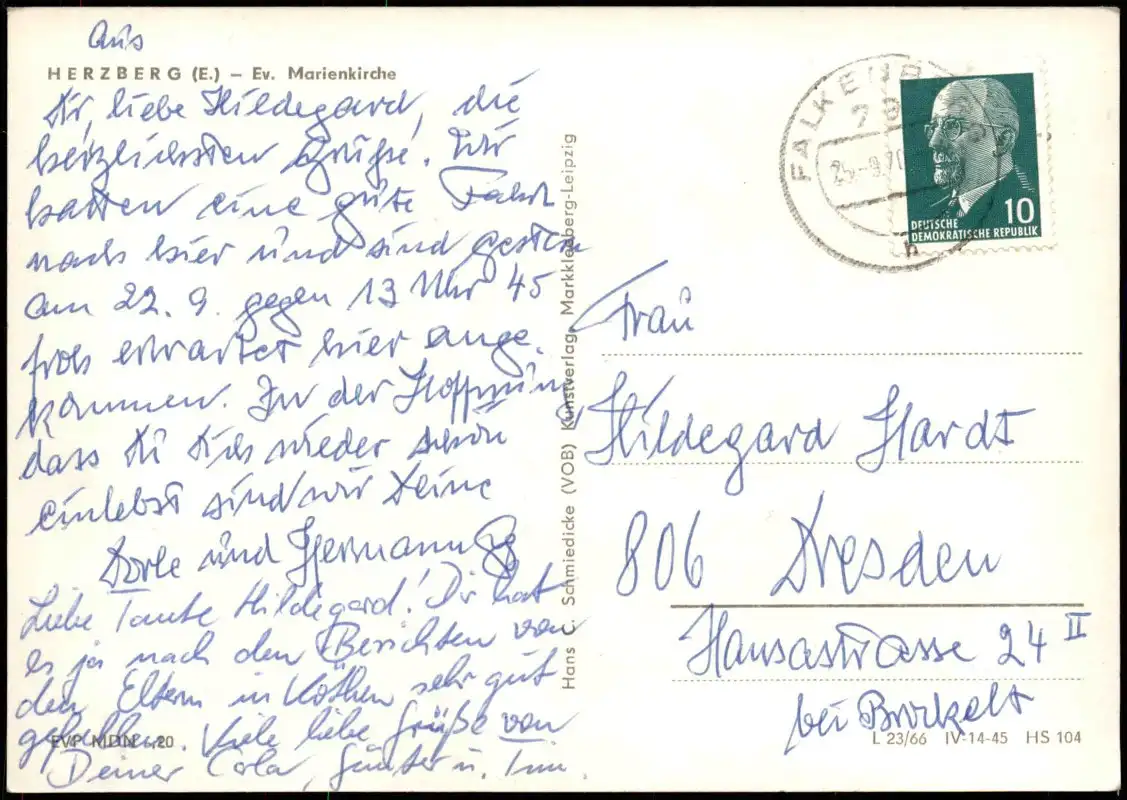 Aus
HERZBERG (E.) – Ev. Marienkirche
Dir, liebe Hildegard, die
herzlichsten Grüße. Wir
hatten eine gute Fahrt
nach hier und sind gestern
am 22. 9. gegen 13 Uhr 45
froh erwartet hier ange-
kommen. In der Hoffnung,
dass Du Dich wieder schön
einlebst sind wir Deine
Dorle und Hermann
Liebe Tante Hildegard! Dir hat
es ja nach den Berichten von
den Eltern in Köthen sehr gut
gefallen. Viele liebe Grüße von
Deiner Cola, Günter u. Tim.
EVP MDN -,20
Hans C. Schmiedicke (VOB) Kunstverlag, Markkleeberg-Leipzig
FALKENB
25.-9.70
h
10
DEUTSCHE
DEMOKRATISCHE REPUBLIK
Frau
Hildegard Hardt
806 Dresden
Hansastrasse 24 II
bei Brockelt
L 23/66 IV-14-45 HS 104